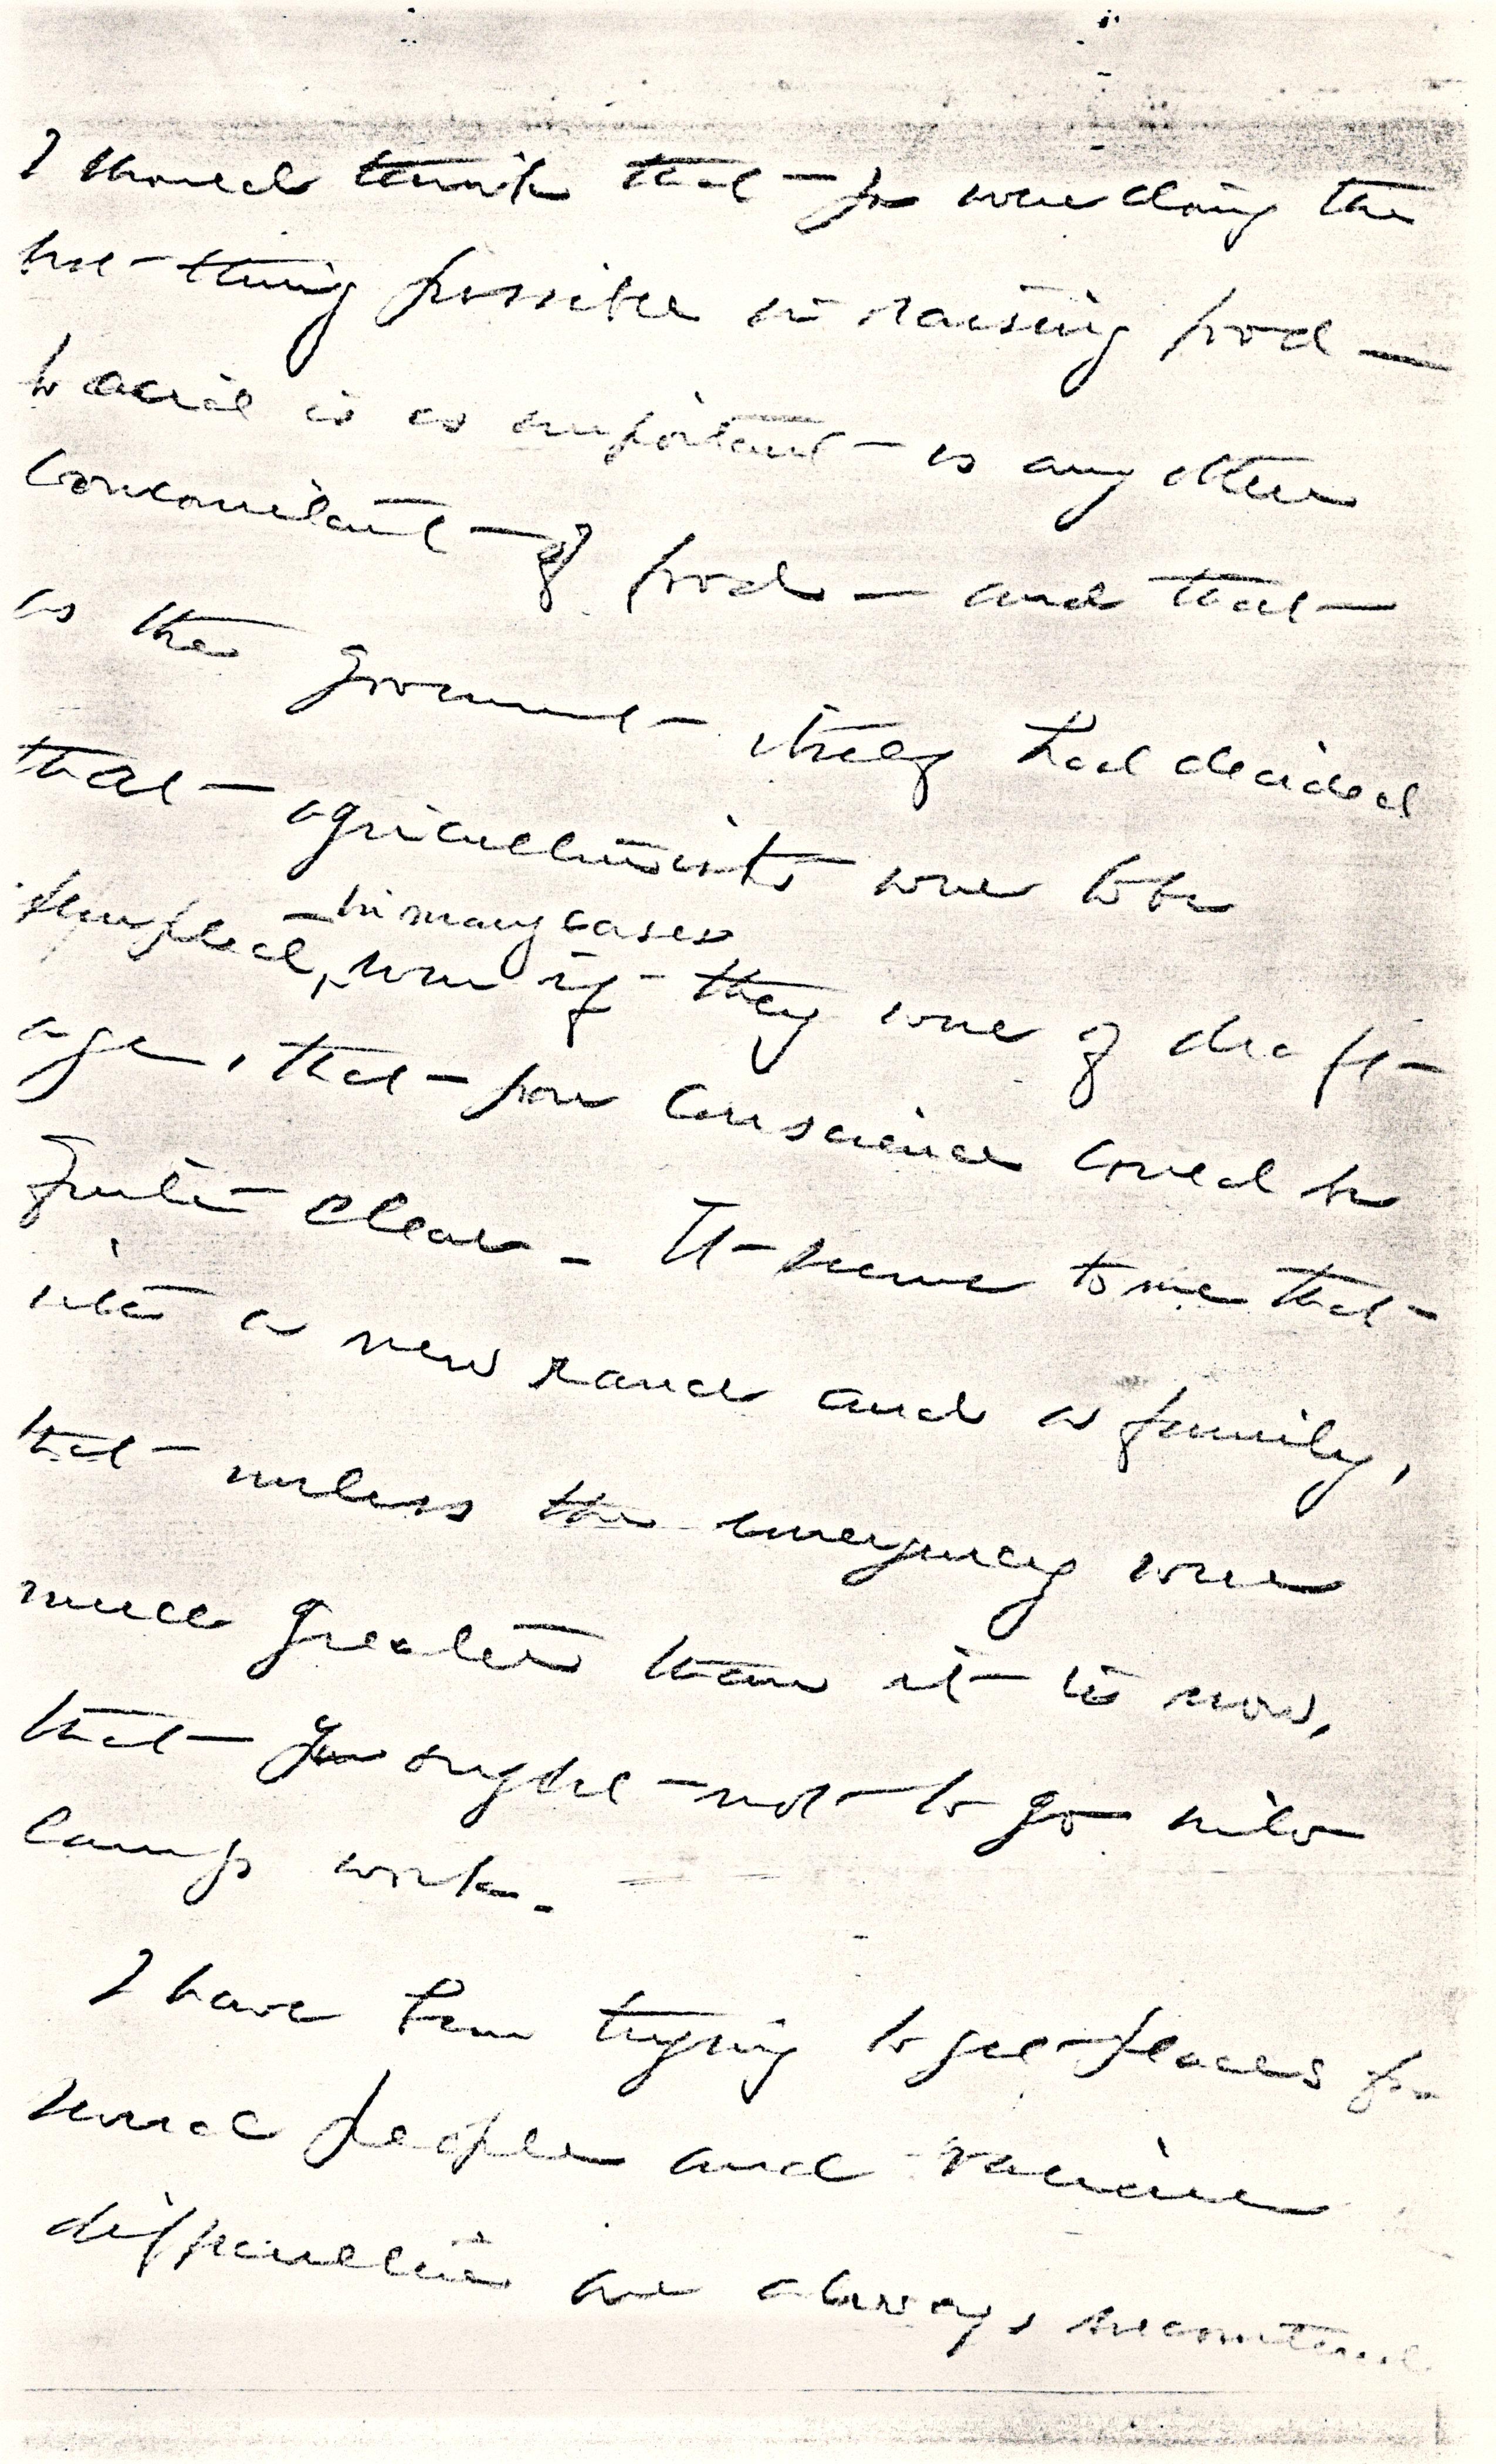 I should think that you were doing the
best thing possible in raising food —
is as important as any other
concomitant of food — and that
as the government itself had decided
that agriculturists were to be
exempted, in many cases even if they were of draft
age, that your conscience could be
quite clear. It seems to me that
with a new ranch and a family,
that unless the emergency were
much greater than it is now,
that you ought not to go into
camp work.
I have been trying to get places for
several people and various
difficulties are always encountered